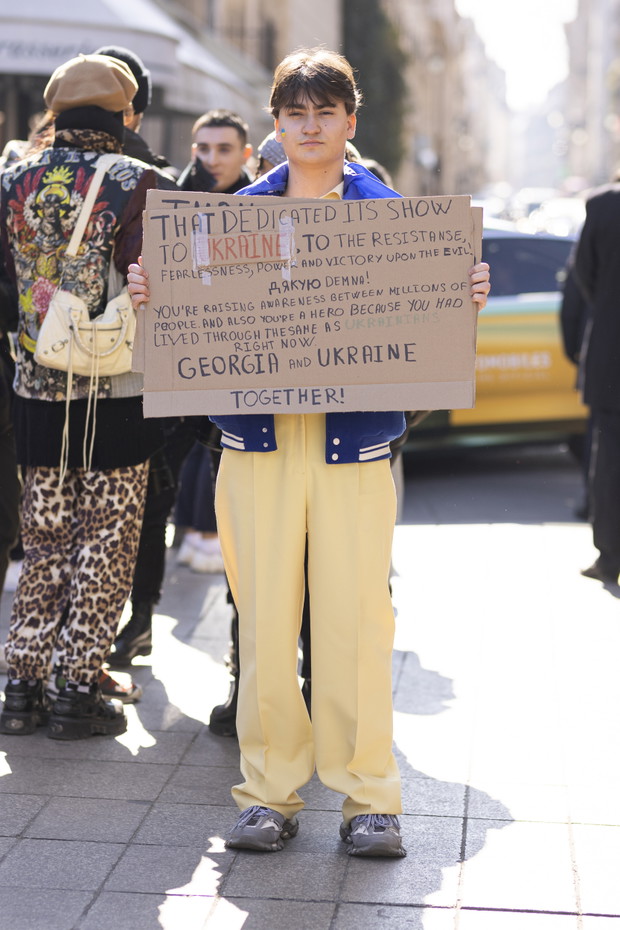 THAT DEDICATED ITS SHOW
TO UKRAINE, TO THE RESISTANSE,
FEARLESSNESS, POWER AND VICTORY UPON THE EVIL
ДЯКУЮ DEMNA!
YOU'RE RAISING AWARENESS BETWEEN MILLIONS OF
PEOPLE. AND ALSO YOU'RE A HERO BECAUSE YOU HAD
LIVED THROUGH THE SAME AS UKRAINIANS
RIGHT NOW.
GEORGIA AND UKRAINE
TOGETHER!